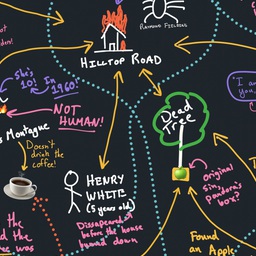 Raymond Fielding
HILLTOP ROAD
She's
10!
In
1960!
NOT
HUMAN!
Montague
Doesn't
drink the
coffee!
Dead
Tree
HENRY
WHITE
(5 years old)
Disappeared
before the house
burned down
original
sin,
pandora's
box?
Found
an Apple
the
was
"I am
you,